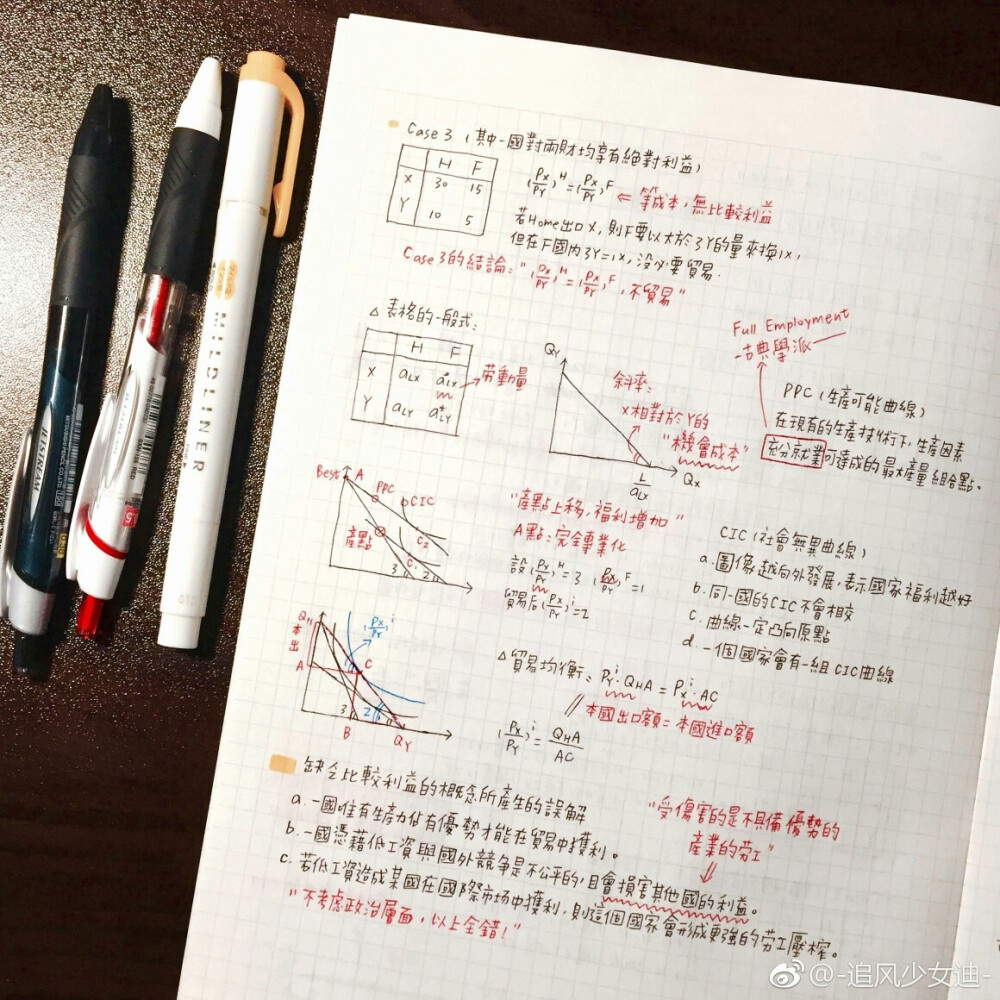 Case 3 (其中一國對兩財均享有絕對利益)
H F
X 30 15
Y 10 5
(Px/Py)^H = (Px/Py)^F ⇐ 等成本,無比較利益
若Home出口X,則F要以大於3Y的量來換1X,
但在F國內3Y=1X,沒必要貿易.
Case 3的結論:"(Px/Py)^H = (Px/Py)^F,不貿易"
△ 表格的一般式:
H F
X aLX a*LX → 勞動量
Y aLY a*LY
QY
斜率:
X相對於Y的
"機會成本"
L/aLX QX
Full Employment
-古典學派
PPC (生產可能曲線)
在現有的生產技術下,生產因素
充分就業可達成的最大產量組合點。
Best A PPC CIC
產點 C2
C1
3 2
"產點上移,福利增加"
A點:完全專業化
設(Px/Py)^H=3 (Px/Py)^F=1
貿易后(Px/Py)^i=2
CIC (社會無異曲線)
a.圖像越向外發展,表示國家福利越好
b.同一國的CIC不會相交
c.曲線一定凸向原點
d.一個國家會有一組CIC曲線
(Px/Py)^i
本
出
A C
3 2
B QY
△ 貿易均衡: Py^i·QHA = Px^i·AC
本國出口額=本國進口額
(Px/Py)^i = QHA/AC
缺乏比較利益的概念所產生的誤解
a.一國唯有生產力佔有優勢才能在貿易中獲利。
b.一國憑藉低工資與國外競爭是不公平的,且會損害其他國的利益。
c.若低工資造成某國在國際市場中獲利,則這個國家會形成更強的勞工壓榨。
"受傷害的是不具備優勢的
產業的勞工"
"不考慮政治層面,以上全錯!"
MILDLINER
JETSTREAM
@-追风少女迪-